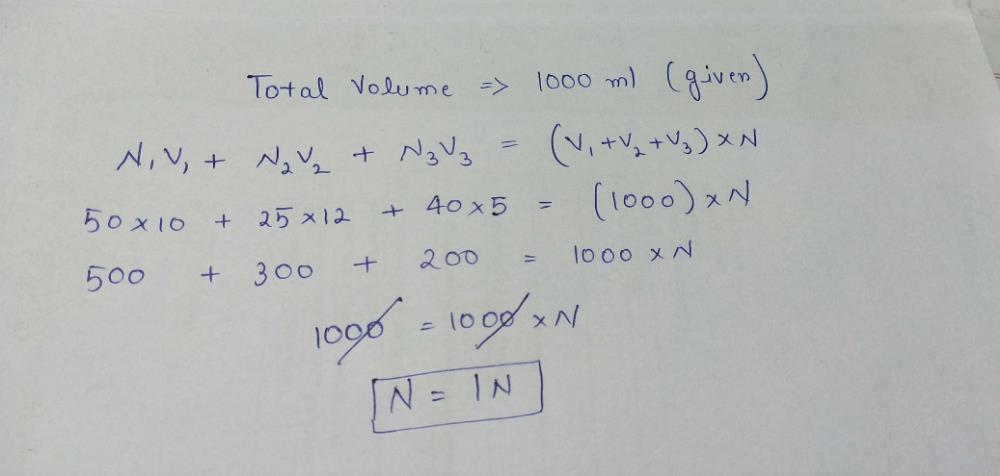 Total Volume => 1000 ml (given)
N₁V₁ + N₂V₂ + N₃V₃ = (V₁+V₂+V₃) × N
50 × 10 + 25 × 12 + 40 × 5 = (1000) × N
500 + 300 + 200 = 1000 × N
1000 = 1000 × N
N = 1N